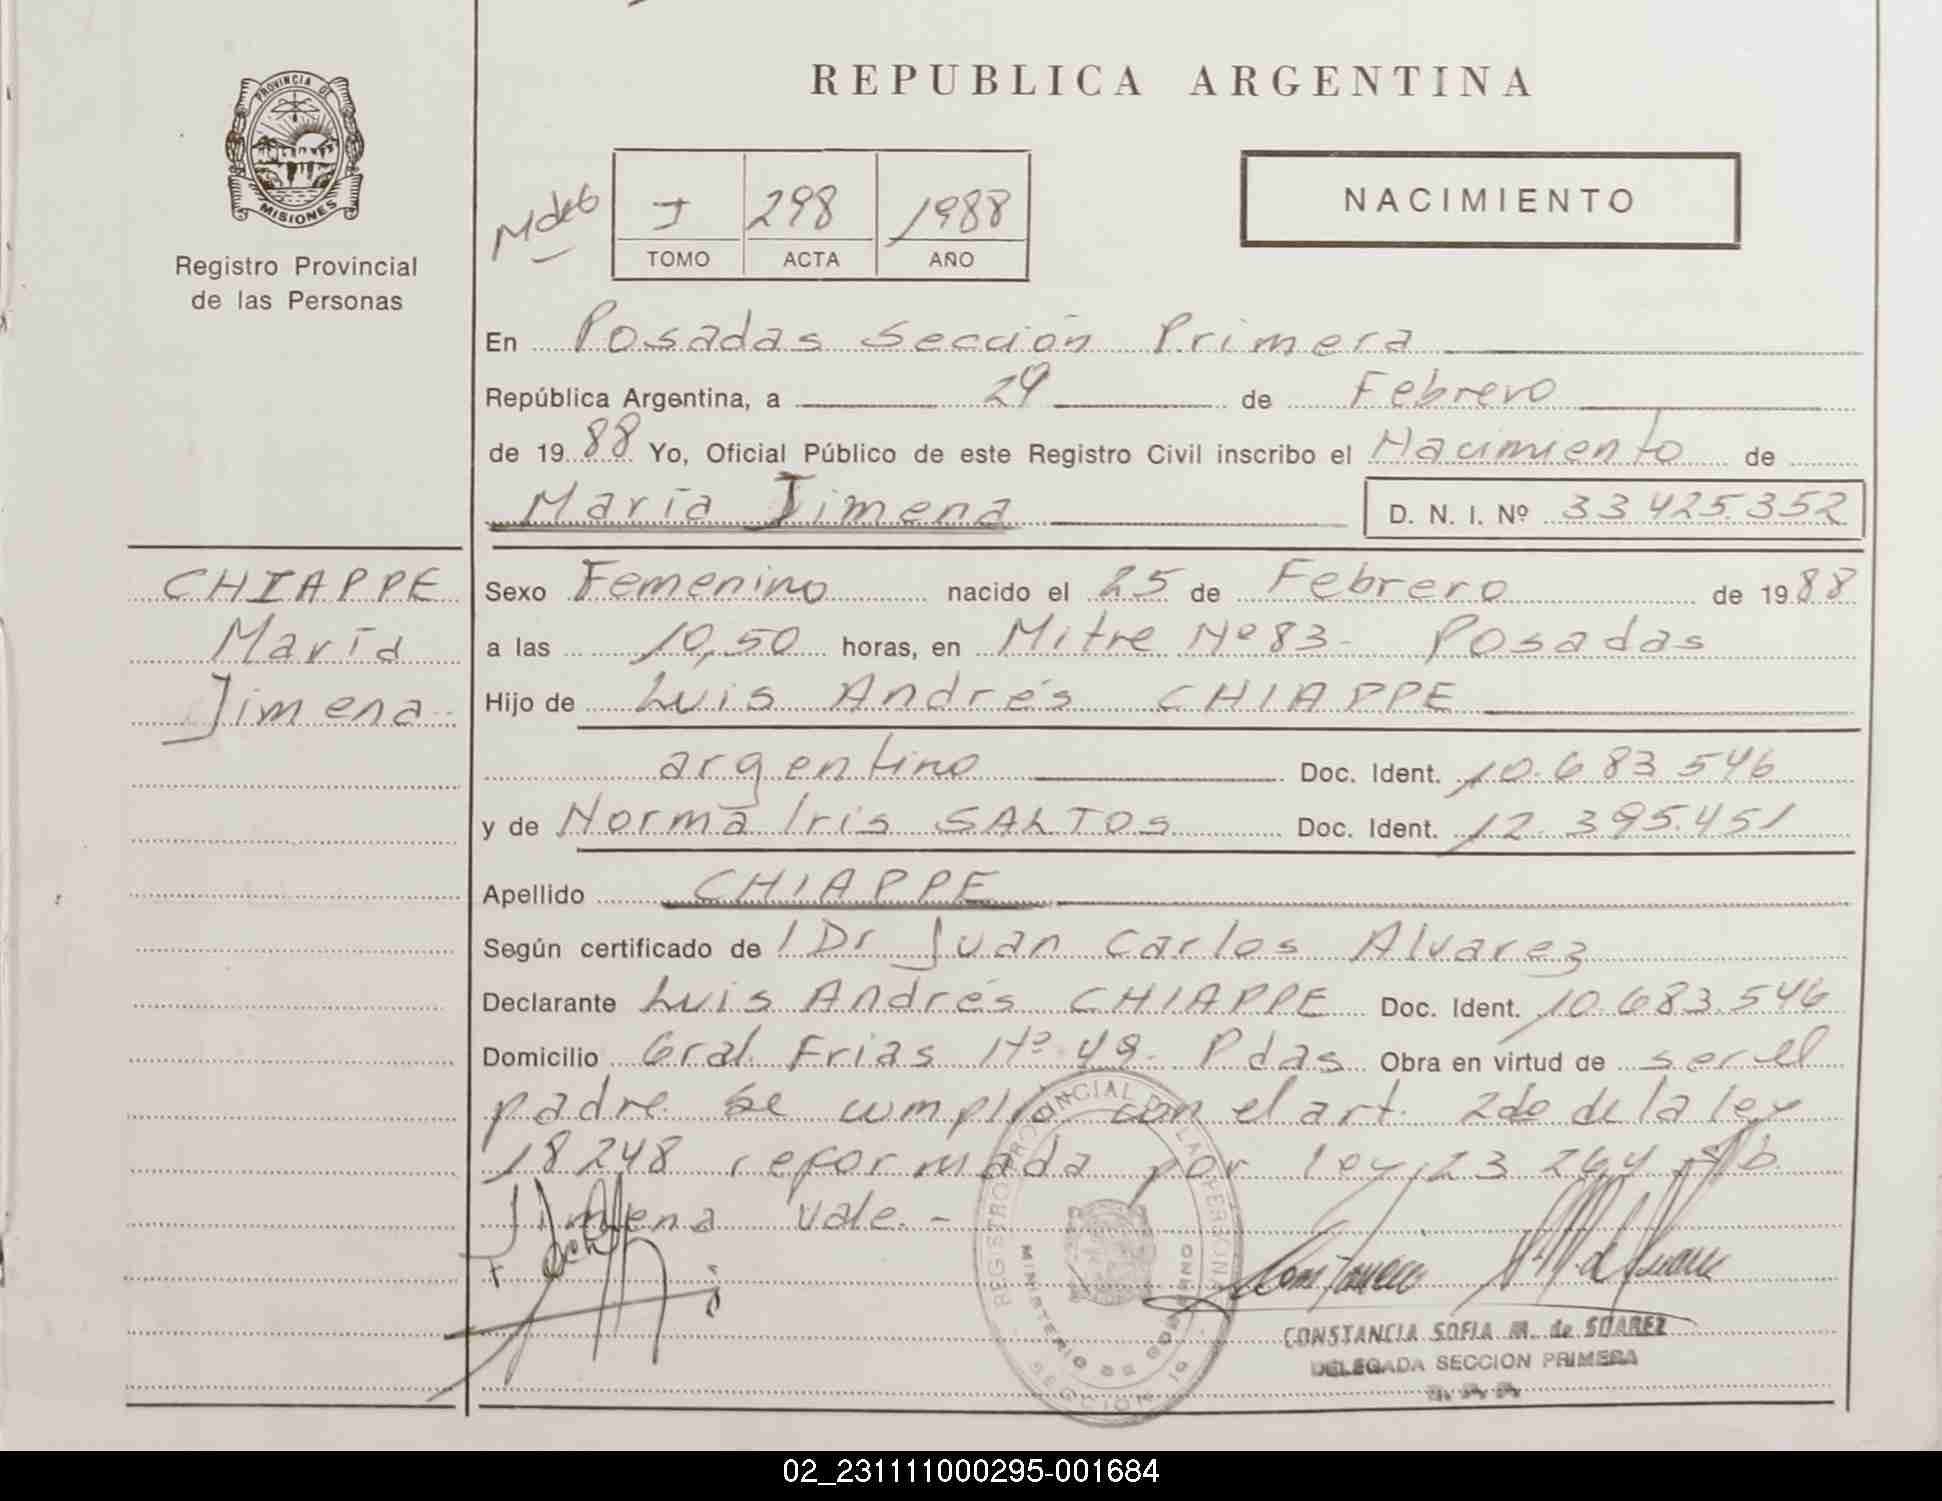 PROVINCIA DE
MISIONES
Registro Provincial
de las Personas
REPUBLICA ARGENTINA
NACIMIENTO
J 298 1988
TOMO ACTA AÑO
En Posadas Sección Primera
República Argentina, a 29 de Febrero
de 1988 Yo, Oficial Público de este Registro Civil inscribo el Nacimiento de
María Jimena D. N. I. Nº 33425352
CHIAPPE
María
Jimena
Sexo Femenino nacido el 25 de Febrero de 1988
a las 10,50 horas, en Mitre Nº 83- Posadas
Hijo de Luis Andrés CHIAPPE
argentino Doc. Ident. 10.683546
y de Norma Iris SALTOS Doc. Ident. 12.395.451
Apellido CHIAPPE
Según certificado de l Dr Juan Carlos Alvarez
Declarante Luis Andrés CHIAPPE Doc. Ident. 10.683.546
Domicilio Gral. Frias Nº 49- Pdas Obra en virtud de ser el
padre. Se cumplió con el art. 2do de la ley
18248 reformada por ley 23264
Jimena vale.-
REGISTRO PROVINCIAL DE LAS PERSONAS
MINISTERIO DE GOBIERNO
SECCION 1º
CONSTANCIA SOFIA M. de SUAREZ
DELEGADA SECCION PRIMERA
02_231111000295-001684